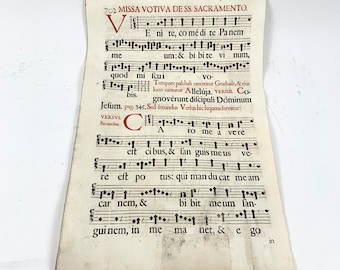 702 MISSA VOTIVA DE SS. SACRAMENTO.
VEnite, comédite Panem
meum: & bibite vinum,
quod miscui vo-
bis. Tempore paschali omittitur Graduale, & ejus
loco cantatur Alleluja, VERSUS Co-
gnovérunt discípuli Dóminum
Jesum. pag. 345. Sed secundus Versus hic sequens servitur:
VERSUS. Secundus. CAro mea vere
est cibus, & sanguis meus ve-
re est potus: qui mandúcat meam
carnem, & bibit meum san-
guinem, in me manet, & ego
in